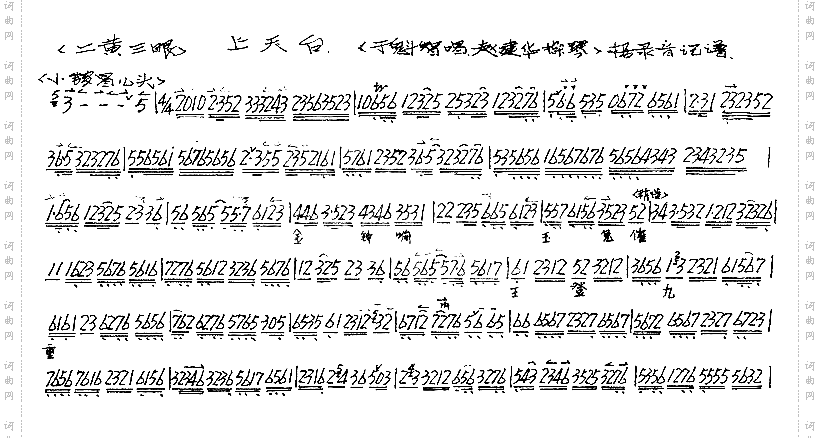 〈二黄三眼〉 上天台 〈于魁智唱 赵建华操琴〉 据录音记谱
〈小锣导心头〉
3 - - - 5 | 4/4 2010 2352 333243 23563523 | 10656 12325 25323 123276 | 566 535 0672 6561 | 2·31 232352
365 323276 | 556561 56765656 2·355 2352161 | 5761 2352 365 323276 | 535656 16567676 56564343 2343235 |
1656 12325 2336 | 56 565 557 6123 | 446 3·523 4346 3531 | 22 235 665 6123 | 557 6156 3523 52 | 343·532 1·212 32326 |
金 钟 响 王 催
11 1623 5676 5616 | 7276 5612 3236 5676 | 12 325 23 36 | 56 565 576 5617 | 61 2312 52 3212 | 3656 13 2321 61567 |
王 登 九
6161 23 6276 5656 | 762 6276 5765 305 | 6535 61 2312 32 | 6712 7276 56 65 | 66 6567 2327 6567 | 5672 6567 2327 6723 |
重
7656 7616 2321 6156 | 32346 3236 5617 6561 | 2316 24 36 503 | 23 3212 656 3276 | 543 2346 3525 3276 | 5356 1276 5555 5632 |
词曲网
词曲网
词曲网
词曲网
词曲网
词曲网
词曲网
词曲网
词曲网
词曲网
词曲网
词曲网